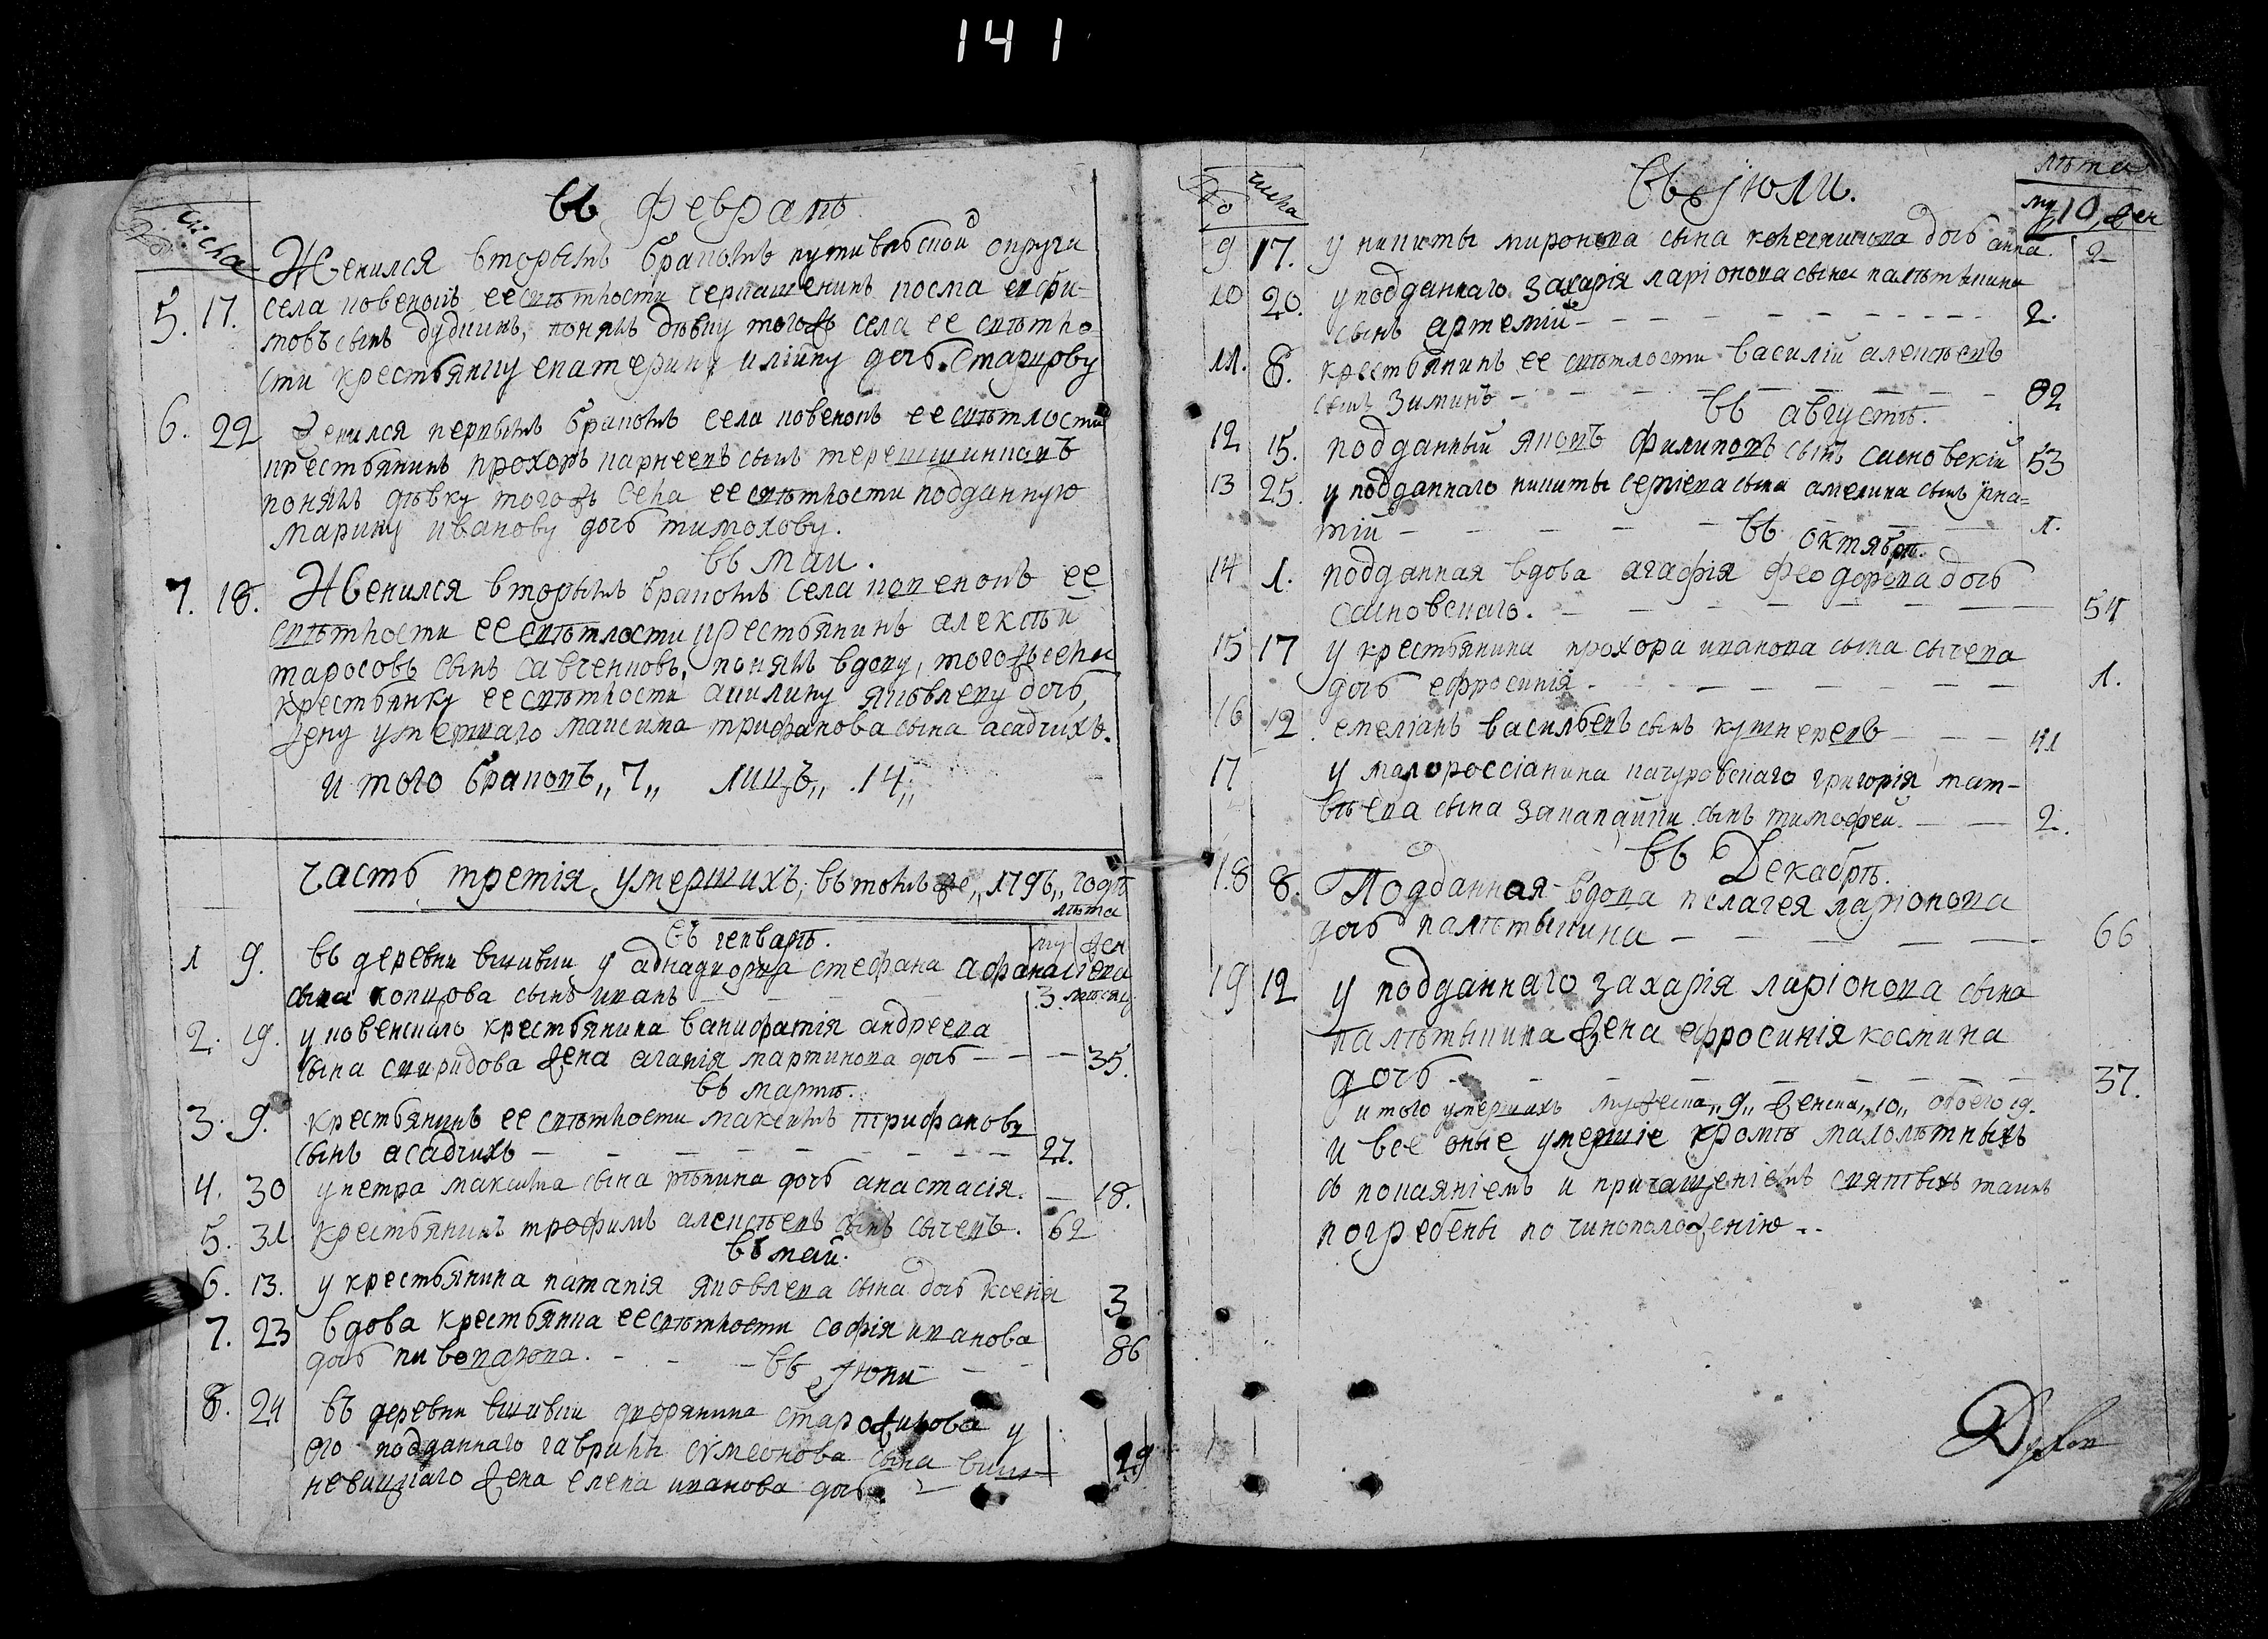 141
въ февралѣ
№ числа
Женился вторымъ бракомъ путивльской округи
5. 17. села ковенокъ ее свѣтлости козма
товъ сынъ дудкинъ, понялъ дѣвку тогожъ села ее свѣтло
сти крестьянку екатерину иліину дочь старцову
6. 22 Женился первымъ бракомъ села ковенокъ ее свѣтлости
крестьянинъ прохоръ карнеевъ сынъ
понялъ дѣвку тогожъ села ее свѣтлости подданную
марину иванову дочь тимохову.
въ маи.
7. 18. Женился вторымъ бракомъ села ковенокъ ее
свѣтлости ее свѣтлости крестьянинъ алексѣй
тарасовъ сынъ савченковъ, понялъ вдову, тогожъ села
крестьянку ее свѣтлости акилину яковлеву дочь,
жену умершаго максима трифанова сына асадчихъ.
и того браковъ „7„ лицъ„ 14„
часть третія умершихъ, въ томъ же „1796„ годѣ
лѣта
въ генварѣ. му жен
1 9. въ деревни у аднадворца стефана афанасіева
сына копцова сынъ иванъ — 3.
2. 19. у ковенскаго крестьянина ванифатія андреева
сына спиридова жена агапія мартинова дочь — — — 35.
въ мартѣ.
3. 9. крестьянинъ ее свѣтлости максимъ трифановъ
сынъ асадчихъ — 27.
4. 30 у петра максима сына рѣпина дочь анастасія. — 18.
5. 31 крестьянинъ трофимъ алексѣевъ сынъ сычевъ. 62
въ маи.
6. 13. у крестьянина патапія яковлева сына дочь ксенія 3
7. 23 вдова крестьянка ее свѣтлости софія иванова
дочь пивоварова. — 86
въ іюни
8. 24 въ деревни дворянина старожилова у
его подданнаго гаврилы сумеонова сына виш
невицкаго жена елена иванова дочь. — 29
№ числа въ іюли. лѣта
му 10, жен
9 17. у никиты миронова сына колесникова дочь анна. 2
10 20. у подданнаго захарія ларіонова сына палѣтыкина
сынъ артемій — 2.
11. 8. крестьянинъ ее свѣтлости василій алексѣевъ
сынъ зиминъ — 82
въ августѣ.
12 15. подданный яковъ филиповъ сынъ сасновскій 53
13 25. у подданнаго никиты сергіева сына амелина сынъ игна=
тій — 1.
въ октябрѣ.
14 1. подданная вдова агафія феодорова дочь
сасновскаго. — 54
15 17 у крестьянина прохора иванова сына сычева
дочь ефросинія — 1.
16 12 емеліанъ васильевъ сынъ кушнеревъ — — — 41
17 у малороссіанина качуровскаго григорія мат-
вѣева сына сынъ тимофей. — — 2.
въ Декабрѣ.
18 8. Подданная вдова пелагея ларіонова
дочь палѣтыкина — 66
19 12 у подданнаго захарія ларіонова сына
палѣтыкина жена ефросинія космина
дочь — 37.
и того умершихъ мужеска„ 9„ женска„ 10„ обоего 19.
и все оные умершіе кромѣ малолѣтныхъ
съ покаяніемъ и причащеніемъ святыхъ таинъ
погребены по чиноположенію..